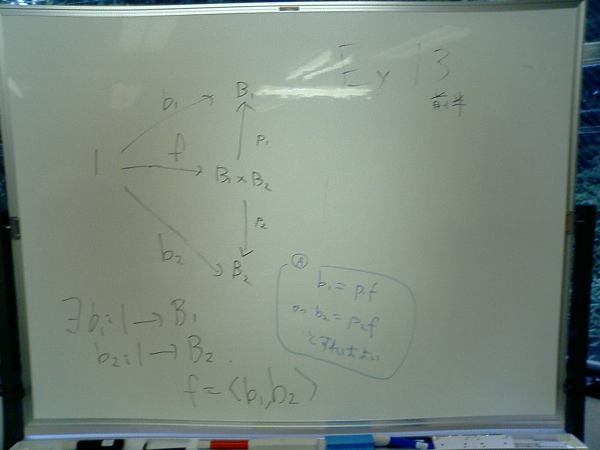 Ex 13
前半
B₁
b₁
p₁
1
f
B₁×B₂
p₂
b₂
B₂
Ⓐ
b₁ = p₁f
かつ b₂ = p₂f
とすればよい
∃b₁:1→B₁
b₂:1→B₂.
f=⟨b₁,b₂⟩